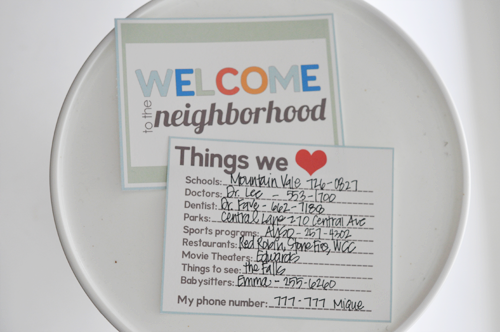 WELCOME
to the neighborhood
Things we
Schools: Mountain Vale 726-0827
Doctors: Dr. Lee - 553-1700
Dentist: Dr. Faye - 662-7188
Parks: Central Lane 270 Central Ave
Sports programs: AYSO - 257-4302
Restaurants: Red Robin, Stone Fire, WCC
Movie Theaters: Edwards
Things to see: the Falls
Babysitters: Emma - 255-6260
My phone number: 777-777 Mique